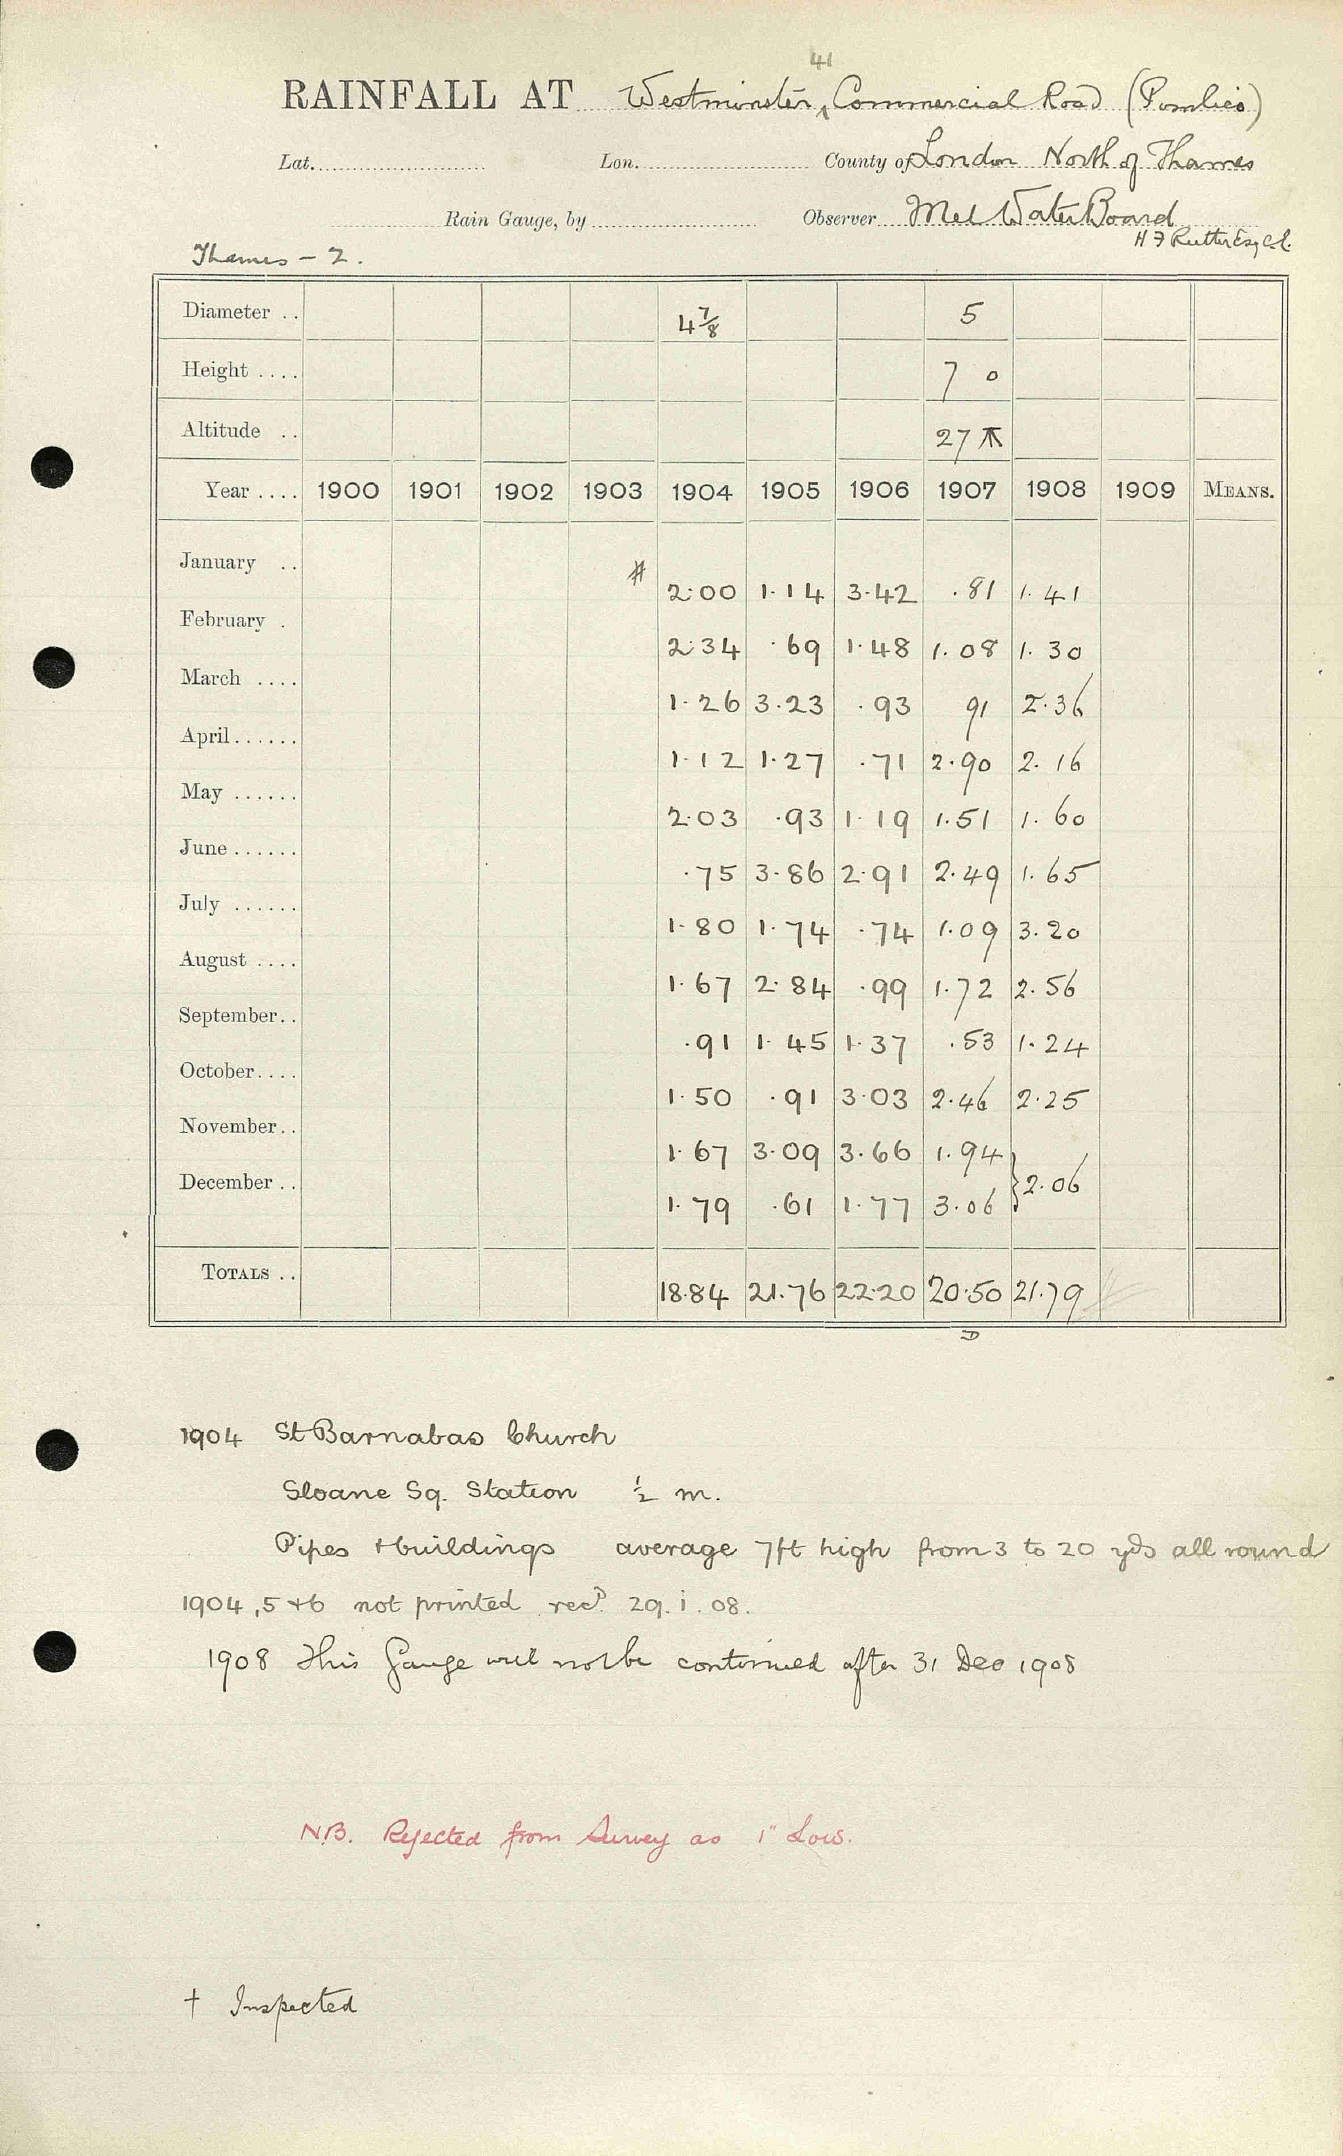 41
RAINFALL AT Westminster, Commercial Road (Pimlico)
Lat. Lon. County of London North of Thames
Rain Gauge, by Observer Met Water Board
H F Rutter Esq C.E.
Thames - 2.
Diameter .. 4 7/8 5
Height .... 7 0
Altitude .. 27
Year .... 1900 1901 1902 1903 1904 1905 1906 1907 1908 1909 MEANS.
January .. # 2.00 1.14 3.42 .81 1.41
February . 2.34 .69 1.48 1.08 1.30
March .... 1.26 3.23 .93 91 2.36
April...... 1.12 1.27 .71 2.90 2.16
May ...... 2.03 .93 1.19 1.51 1.60
June ...... .75 3.86 2.91 2.49 1.65
July ...... 1.80 1.74 .74 1.09 3.20
August .... 1.67 2.84 .99 1.72 2.56
September.. .91 1.45 1.37 .53 1.24
October.... 1.50 .91 3.03 2.46 2.25
November.. 1.67 3.09 3.66 1.94
December .. 1.79 .61 1.77 3.06 } 2.06
TOTALS .. 18.84 21.76 22.20 20.50 21.79
D
1904 St Barnabas Church
Sloane Sq. Station ½ m.
Pipes + buildings average 7ft high from 3 to 20 yds all round
1904, 5 + 6 not printed recd. 29.i.08.
1908 This Gauge will not be continued after 31 Dec 1908
N.B. Rejected from Survey as 1" Low.
† Inspected